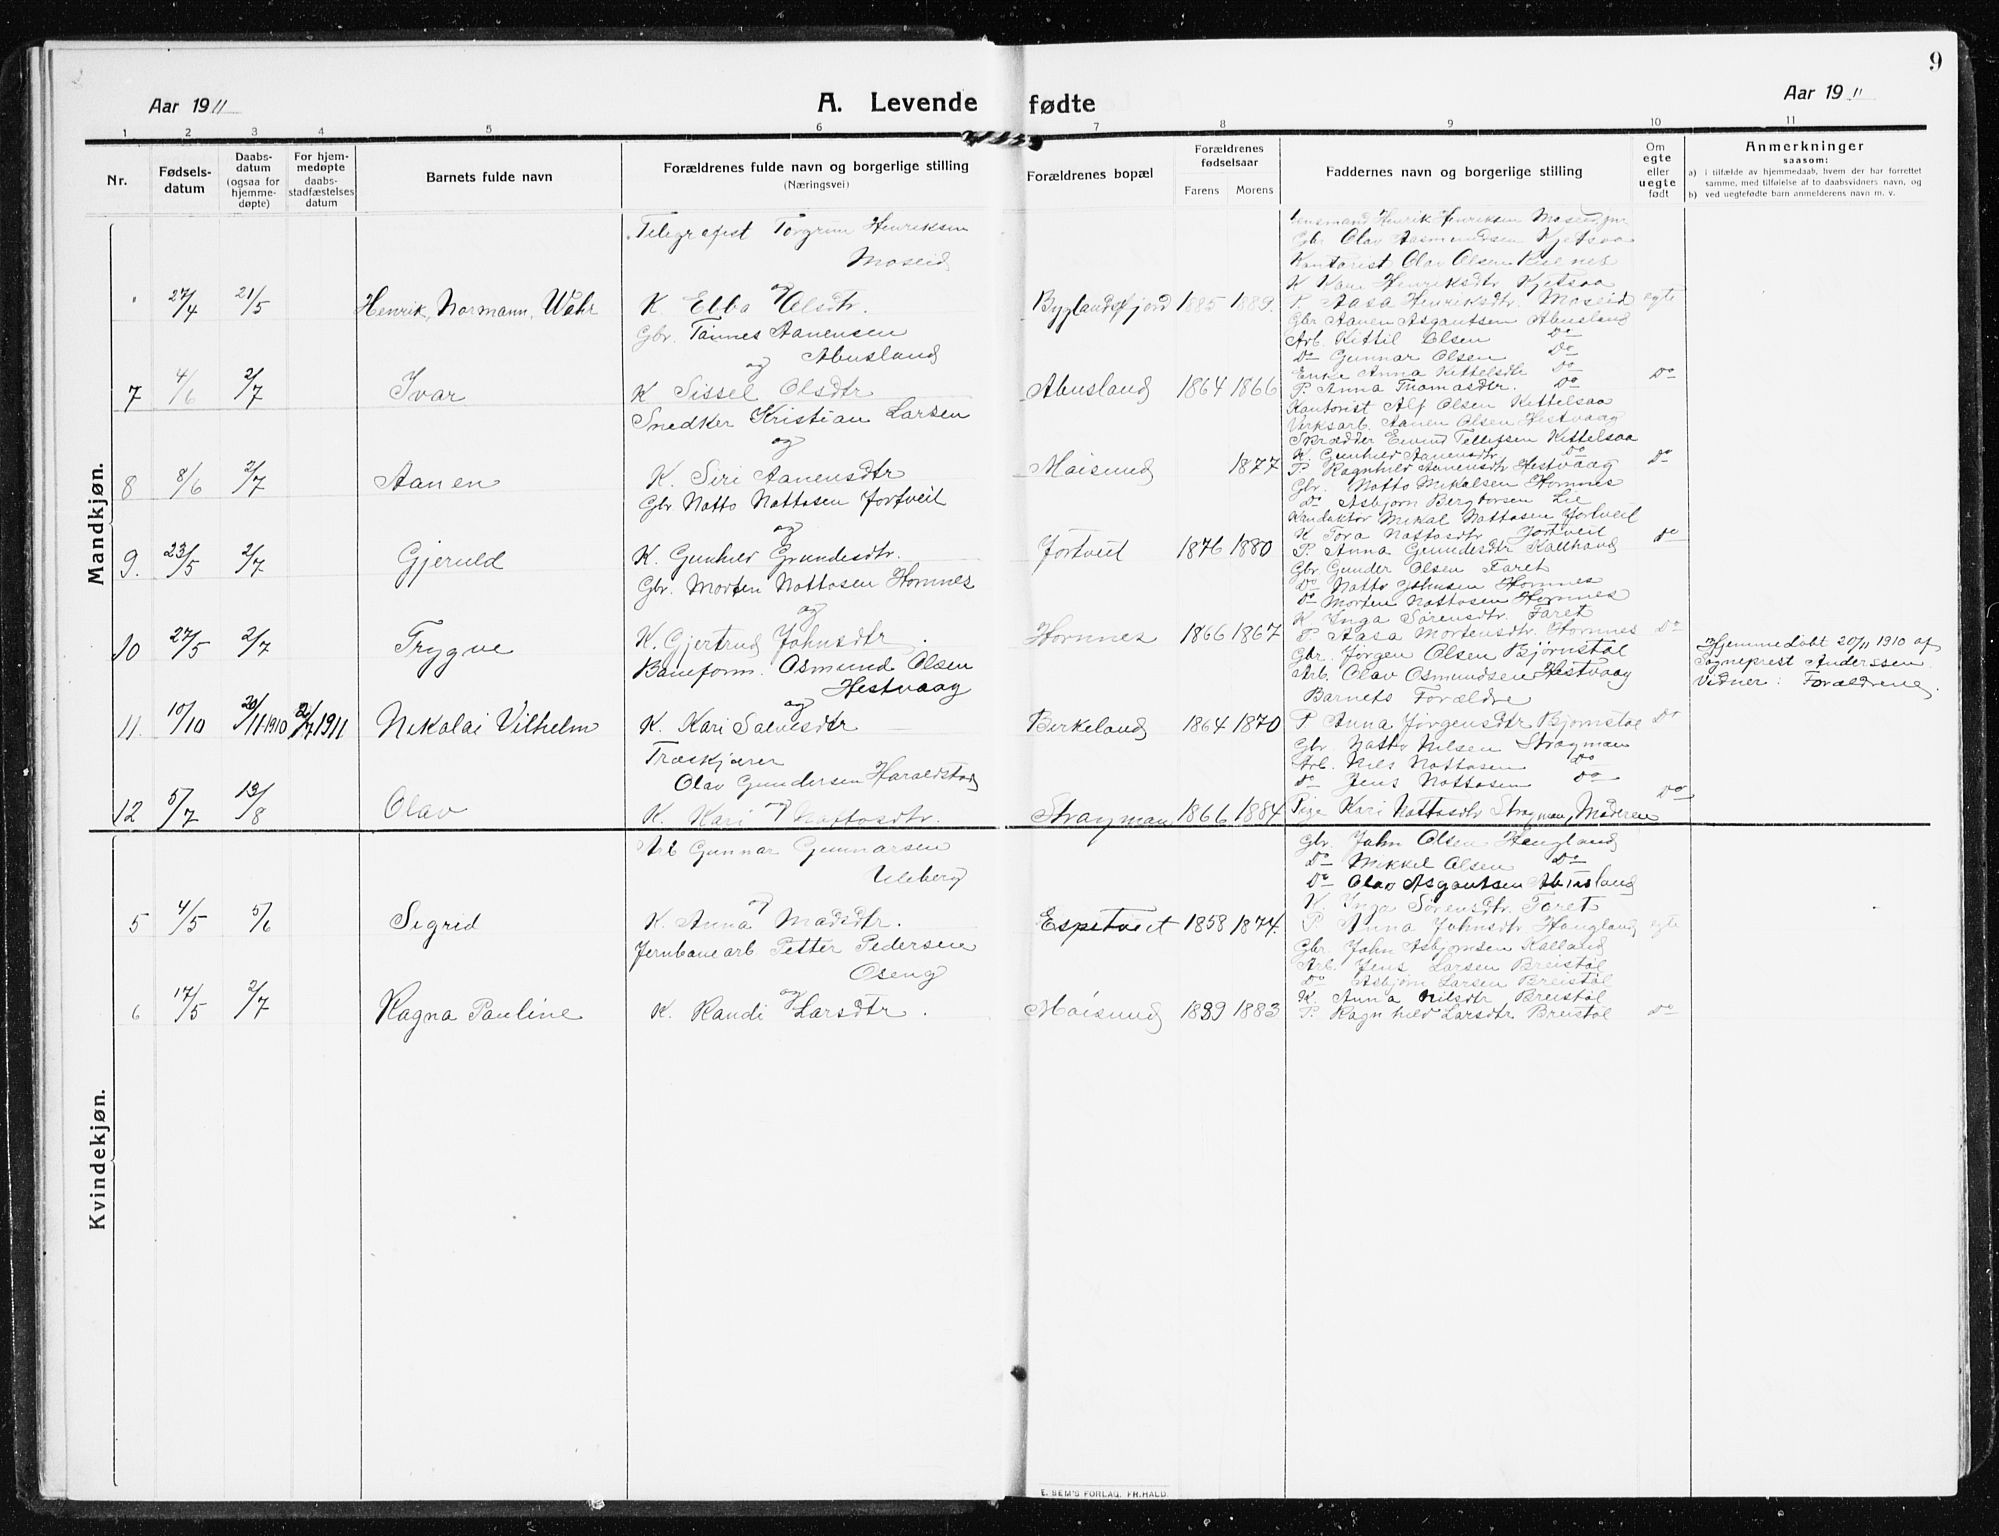 9
Aar 1911
A. Levende fødte
Aar 1911
1 2 3 4 5 6 7 8 9 10 11
Nr.
Fødsels-
datum
Daabs-
datum
(ogsaa for
hjemme-
døpte)
For hjem-
medøpte
daabs-
stadfæstelses
datum
Barnets fulde navn
Forældrenes fulde navn og borgerlige stilling
(Næringsvei)
Forældrenes bopæl
Forældrenes
fødselsaar
Farens Morens
Faddernes navn og borgerlige stilling
Om
egte
eller
uegte
født
Anmerkninger
saasom:
a) i tilfælde av hjemmedaab, hvem der har forrettet
samme, med tilføielse af to daabsvidners navn, og
b) ved uegtefødte barn anmelderens navn m. v.
Mandkjøn.
27/4 21/5 Henrik Normann Wahr
Telegrafist Torgrim Henriksen
Moseid
og
K. Ebba Olsdtr.
Byglandsfjord 1885 1889
Lensmand Henrik Henriksen Moseid
Gbr Olav Aasmundsen Kjetsaa
Kontorist Olav Olsen
K Kari Henriksdtr Kjetsaa
P. Aasa Henriksdtr. Moseid
egte
7 4/6 2/7 Ivar
Gbr. Tønnes Aanensen
Abusland
og
K Sissel Olsdtr
Abusland 1864 1866
Gbr Aanen Asgautsen Abusland
Arb. Kittil Olsen Do
Do Gunnar Olsen Do
Enke Anna Kittelsdtr Do
P. Anna Thomasdtr. Do
Do
8 8/6 2/7 Aanen
Snedker Kristian Larsen
og
K. Siri Aanensdtr
Moisund 1877
Kontorist Alf Olsen Kittelsaa
Verksarb. Aanen Olsen Hestvaag
Skrædder Eivind Tellefsen Kittelsaa
K. Gunhild Aanensdtr Do
P. Ragnhild Aanensdtr Hestvaag
Do
9. 23/5 2/7 Gjeruld
Gbr Notto Nottosen Jortveit
og
K. Gunhild Grundesdtr.
Jortveit 1876 1880
Gbr. Notto Mikalsen Hornnes
Do Asbjørn Bergtorsen Lie
Konduktør Mikal Nottosen Jortveit
K Tora Nottosdtr Jortveit
P. Anna Gundesdtr Kallhovd
Do
10 27/5 2/7 Trygve
Gbr. Morten Nottosen Hornnes
og
K. Gjertrud Johnsdtr.
Hornnes 1866 1867
Gbr Gunder Olsen Faret
Do Notto Johnsen Hornnes
Do Morten Nottosen Hornnes
K Inga Sørensdtr. Faret
P Aasa Mortensdtr. Hornnes
Do
11. 10/10 20/11 1910 2/7 1911 Nikolai Vilhelm
Baneform. Osmund Olsen
Hestvaag
og
K. Kari Salvesdtr
Birkeland 1864 1870
Gbr. Jørgen Olsen Bjørnstøl
Arb. Olav Osmundsen Hestvaag
Barnets Forældre
P Anna Jørgensdtr Bjørnstøl
Do
Hjemmedøbt 20/11 1910 af
Sogneprest Anderssen.
Vidner: Forældrene.
12 5/7 13/8 Olav
Træskjærer
Olav Gundersen Haraldstad
og
K. Kari Nottosdtr.
Stragman 1866 1884
Gbr. Notto Nilsen Stragman
Arb. Nils Nottosen Do
Do Jens Nottosen Do
Pige Kari Nottosdtr Stragman, Moderen
Do
Kvindekjøn.
5 4/5 5/6 Sigrid
Arb Gunnar Gunnarsen
Uleberg
og
K. Anna Madsdtr.
Espetveit 1858 1874.
Gbr. John Olsen Haugland
Do Mikkel Olsen Do
Do Olav Asgautsen Abusland
K. Inga Sørensdtr. Faret
P Anna Johnsdtr Haugland
egte
6 17/5 2/7 Ragna Pauline
Jernbanearb Petter Pedersen
Oseng
og
K. Randi Larsdtr.
Moisund 1889 1883
Gbr. John Asbjørnsen Kalland
Arb. Jens Larsen Breistøl
Do Asbjørn Larsen Breistøl
K. Anna Nilsdtr Breistøl
P. Ragnhild Larsdtr Breistøl
Do
E. SEM'S FORLAG, FR.HALD.